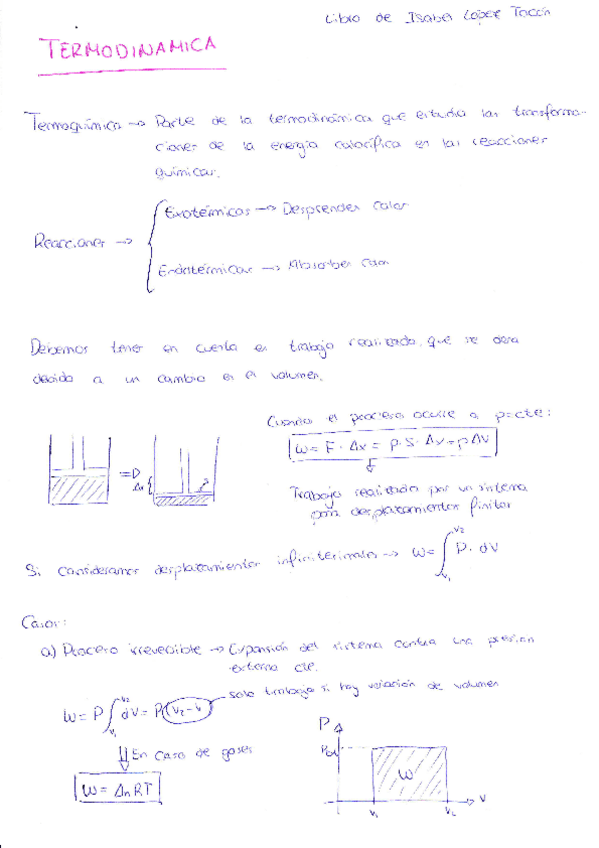 Libro de Isabel López Tocón
TERMODINAMICA
Termoquímica → Parte de la termodinámica que estudia las transforma-
ciones de la energía calorífica en las reacciones
químicas.
Exotérmicas → Desprenden calor
Reacciones →
Endotérmicas → Absorben calor
Debemos tener en cuenta el trabajo realizado, que se dará
debido a un cambio en el volumen.
Cuando el proceso ocurre a p=cte:
W = F · Δx = p · S · Δx = p ΔV
Δx
Trabajo realizado por un sistema
para desplazamientos finitos
Si consideramos desplazamientos infinitesimales → W = ∫ P · dV
V2
V1
Casos:
a) Proceso irreversible → Expansión del sistema contra una presion
externa cte.
solo trabaja si hay variación de volumen
W = P ∫ dV = P (V2 - V1)
V2
V1
En caso de gases
W = Δn RT
P
Pext
W
V1 V2 V